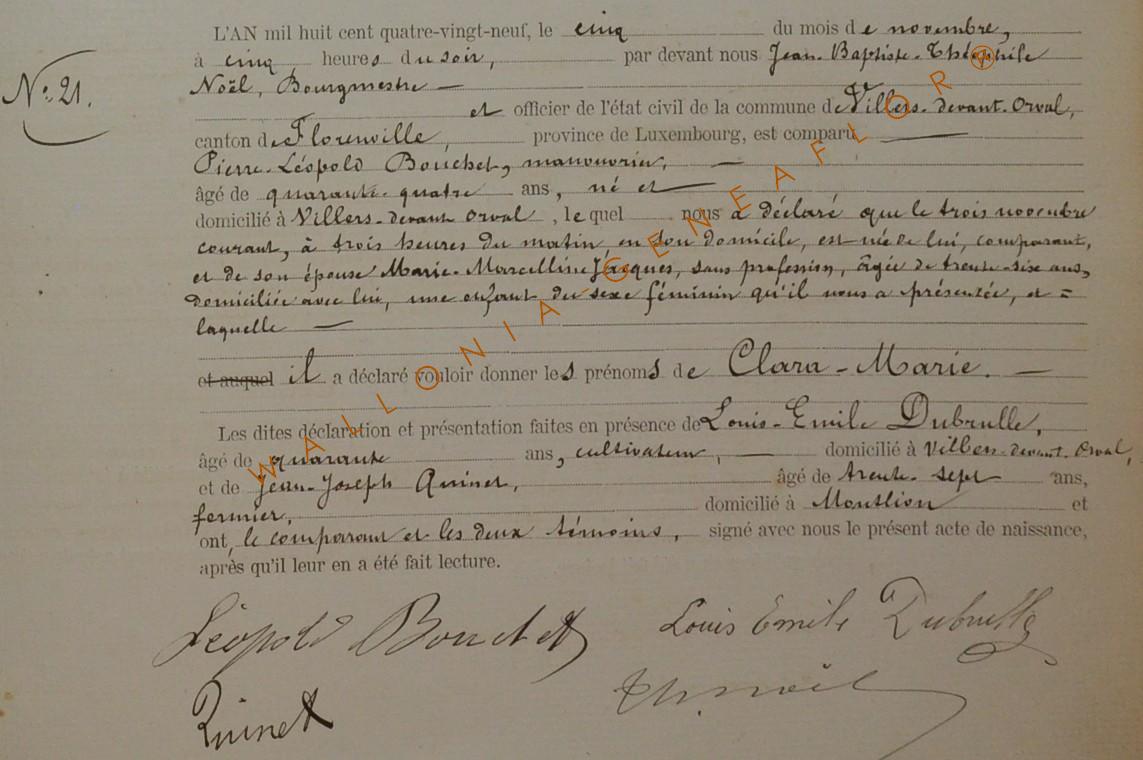 L'AN mil huit cent quatre-vingt-neuf, le cinq du mois de novembre,
à cinq heures du soir, par devant nous Jean-Baptiste-Théophile
Nº 21.
Noël, Bourgmestre —
et officier de l'état civil de la commune de Villers-devant-Orval,
canton de Florenville, province de Luxembourg, est comparu —
Pierre-Léopold Bouchet, manouvrier, —
âgé de quarante-quatre ans, né et —
domicilié à Villers-devant Orval, lequel nous a déclaré que le trois novembre
courant, à trois heures du matin, en son domicile, est née de lui, comparant,
et de son épouse Marie-Marcelline Jacques, sans profession, âgée de trente-six ans,
domiciliée avec lui, une enfant du sexe féminin qu'il nous a présentée, et =
laquelle —
et auquel il a déclaré vouloir donner les prénoms de Clara-Marie. —
Les dites déclaration et présentation faites en présence de Louis-Emile Dubrulle,
âgé de quarante ans, cultivateur, — domicilié à Villers-devant-Orval,
et de Jean-Joseph Quinet, âgé de trente-sept ans,
fermier, domicilié à Montlion et
ont, le comparant et les deux témoins, signé avec nous le présent acte de naissance,
après qu'il leur en a été fait lecture.
Léopold Bouchet Louis Emile Dubrulle
Quinet Th. Noël
WALLONIA GENEAFLOR